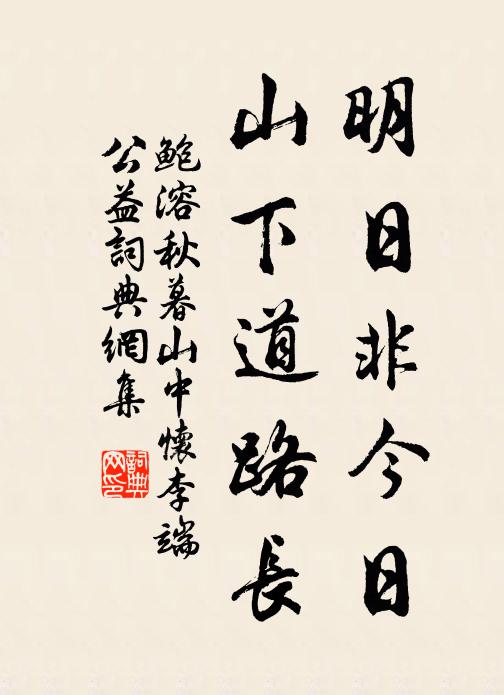 明日非今日
山下道路長
鮑溶秋暮山中懷李端
公益詞典網集
詞典网印